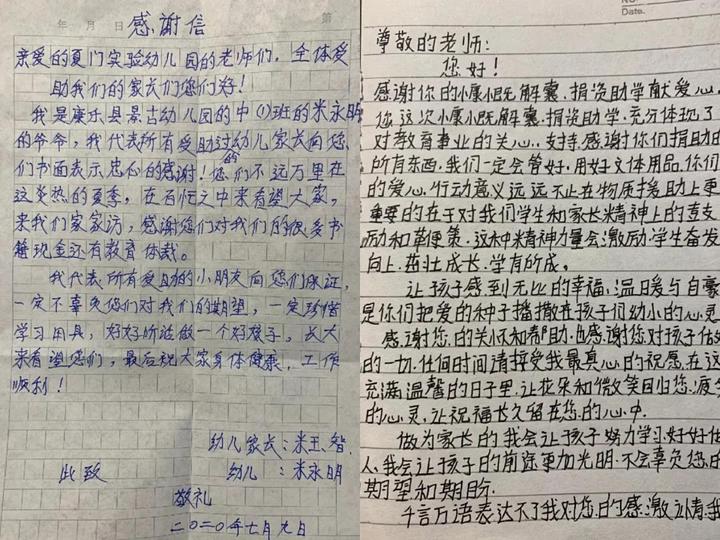 年 月 日
第
感谢信
亲爱的夏门实验幼儿园的老师们，全体受
助我们的家长们您们好！
我是康乐县景古幼儿园的中(1)班的米永明
的爷爷，我代表所有受助过幼儿家长向您
们书面表示忠心的感谢！您们不远万里在
这炎热的夏季，在百忙之中来看望大家，
来我们家家访，感谢您们对我们的很多书
籍现金还有教育体裁。
我代表所有受助的小朋友向您们保证，
一定不辜负您们对我们的期望，一定珍惜
学习用具，好好听话做一个好孩子，长大
来看望您们，最后祝大家身体健康，工作
顺利！
幼儿家长：米玉智
此致 幼儿：米永明
敬礼
二〇二〇年七月九日
No
Date.
尊敬的老师：
您好！
感谢你的小康小既无解囊.捐资助学献爱心.
您这次小康小既无解囊.捐资助学.充分体现了
对教育事业的关心.支持.感谢你们捐助的
所有东西.我们一定会管好.用好文体用品.你们
的爱心.行动意义远远不止在物质援助上更
重要的在于对我们学生和家长精神上的支
励和革便策.这种来精神力量会激励学生奋发
向上.茁壮成长.学有所成。
让孩子感到无比的幸福、温暖与自豪
是你们把爱的种子播撒在孩子们幼小的心灵
感谢您.的关怀和帮助.也感谢您对孩子做
的一切.任何时间请接受我最真心的祝愿.在这
充满温馨的日子里.让花朵和微笑回归您.疲
的心灵.让祝福长久留在您的心中.
做为家长的我会让孩子努力学习好好做
人.我会让孩子的前途更加光明.不会辜负您的
期望和期盼.
千言万语表达不了我对您的感激之情.我